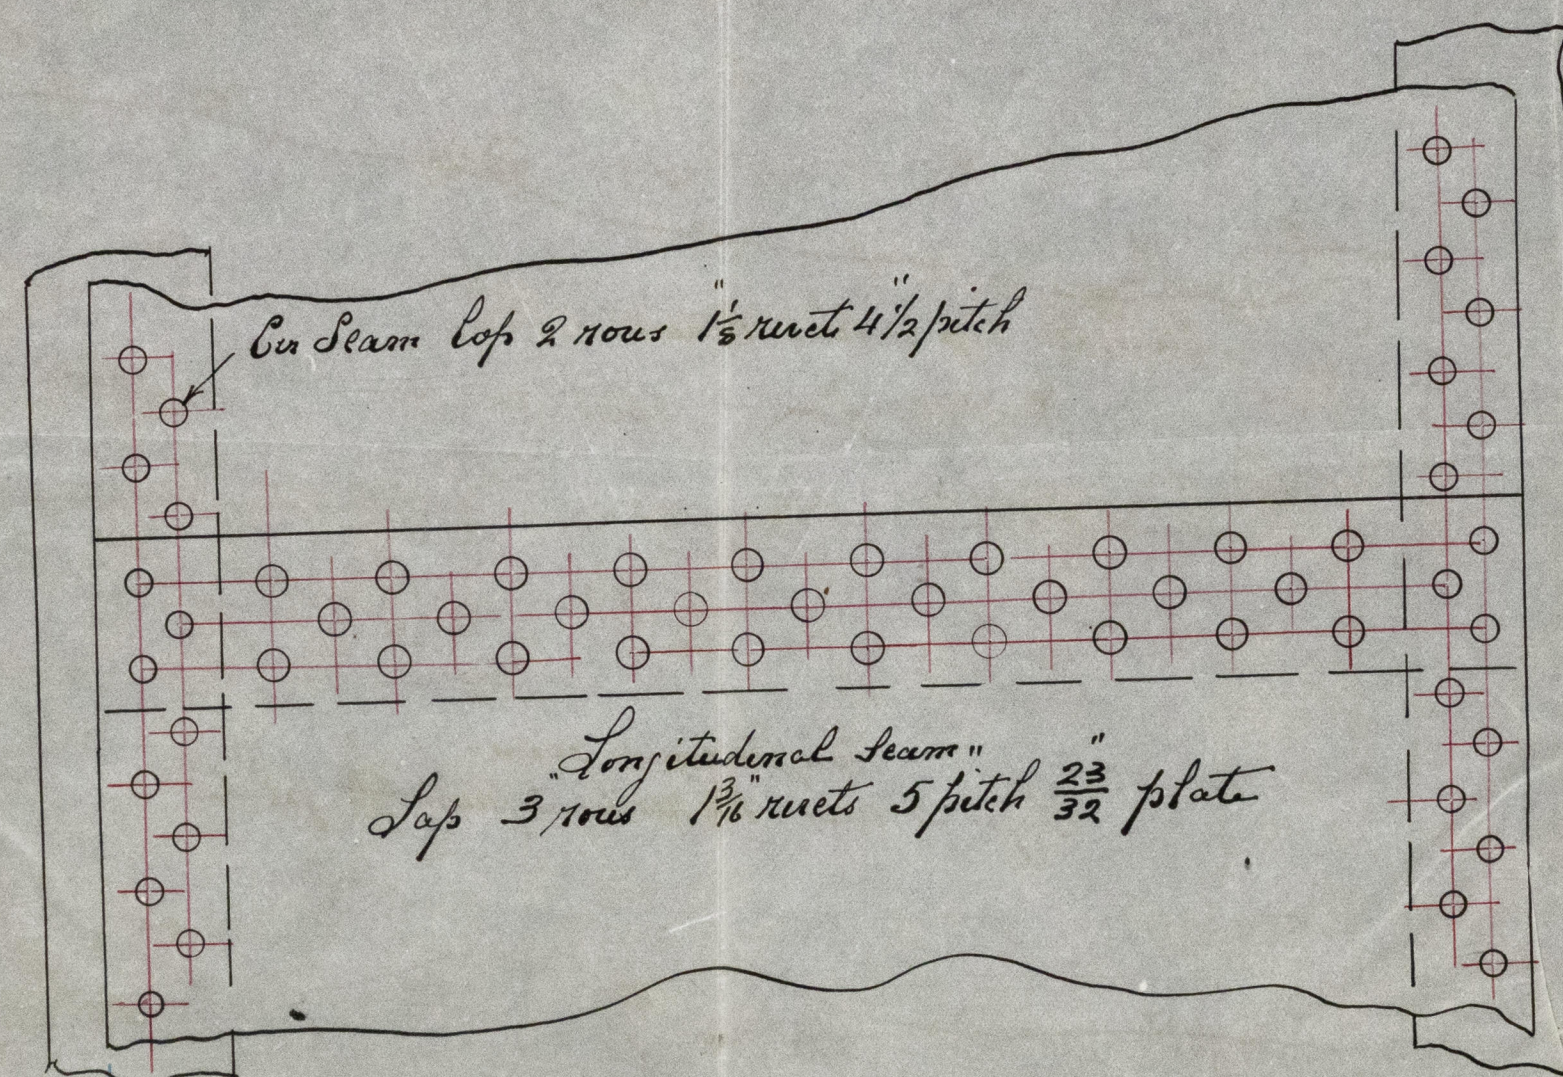 Cir Seam Lap 2 rows 1 1/8" rivets 4 1/2" pitch
Longitudinal Seam
Lap 3 rows 1 3/16" rivets 5" pitch 23/32" plate